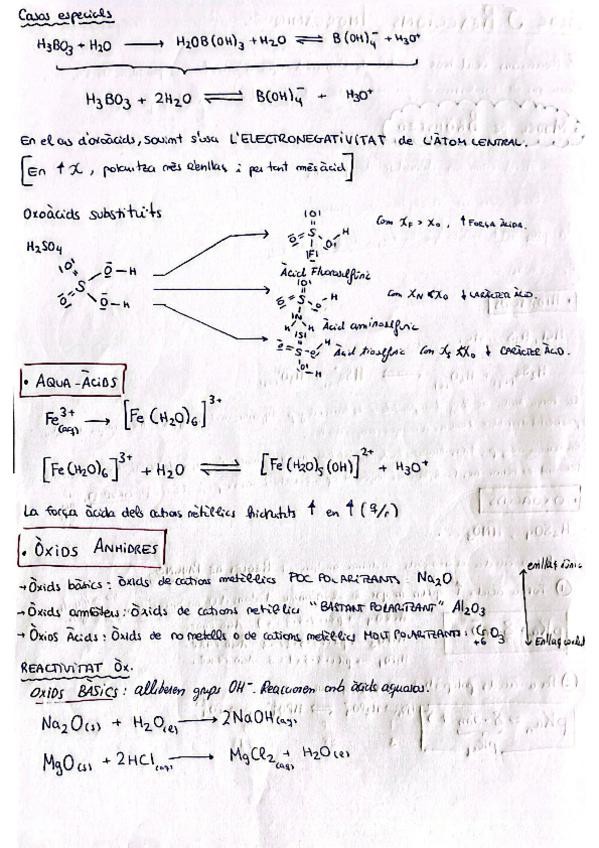 Casos especials
H₃BO₃ + H₂O → H₂OB(OH)₃ + H₂O ⇌ B(OH)₄⁻ + H₃O⁺
H₃BO₃ + 2H₂O ⇌ B(OH)₄⁻ + H₃O⁺
En el cas d'oxoàcids, sovint s'usa L'ELECTRONEGATIVITAT de L'ÀTOM CENTRAL.
[En ↑ χ, polaritza més l'enllaç i per tant més àcid]
Oxoàcids substituïts
H₂SO₄
Àcid Fluorosulfúric
Com χF > χO, ↑ FORÇA ÀCIDA.
Àcid aminosulfúric
Com χN < χO ↓ CARÀCTER ÀCID.
Àcid tiosulfúric Com χS < χO ↓ CARÀCTER ÀCID.
• AQUA-ÀCIDS
Fe³⁺(aq) → [Fe(H₂O)₆]³⁺
[Fe(H₂O)₆]³⁺ + H₂O ⇌ [Fe(H₂O)₅(OH)]²⁺ + H₃O⁺
La força àcida dels cations metàl·lics hidratats ↑ en ↑ (q/r)
• ÒXIDS ANHIDRES
→ Òxids bàsics: òxids de cations metàl·lics POC POLARITZANTS. Na₂O
→ Òxids amfòters: Òxids de cations metàl·lics "BASTANT POLARITZANT" Al₂O₃
→ Òxids Àcids: Òxids de no metalls o de cations metàl·lics MOLT POLARITZANTS. CrO₃
+6
enllaç iònic
Enllaç covalent
REACTIVITAT ÒX.
OXIDS BÀSICS: alliberen grups OH⁻. Reaccionen amb àcids aquosos.
Na₂O(s) + H₂O(l) → 2NaOH(aq)
MgO(s) + 2HCl(aq) → MgCl₂(aq) + H₂O(l)